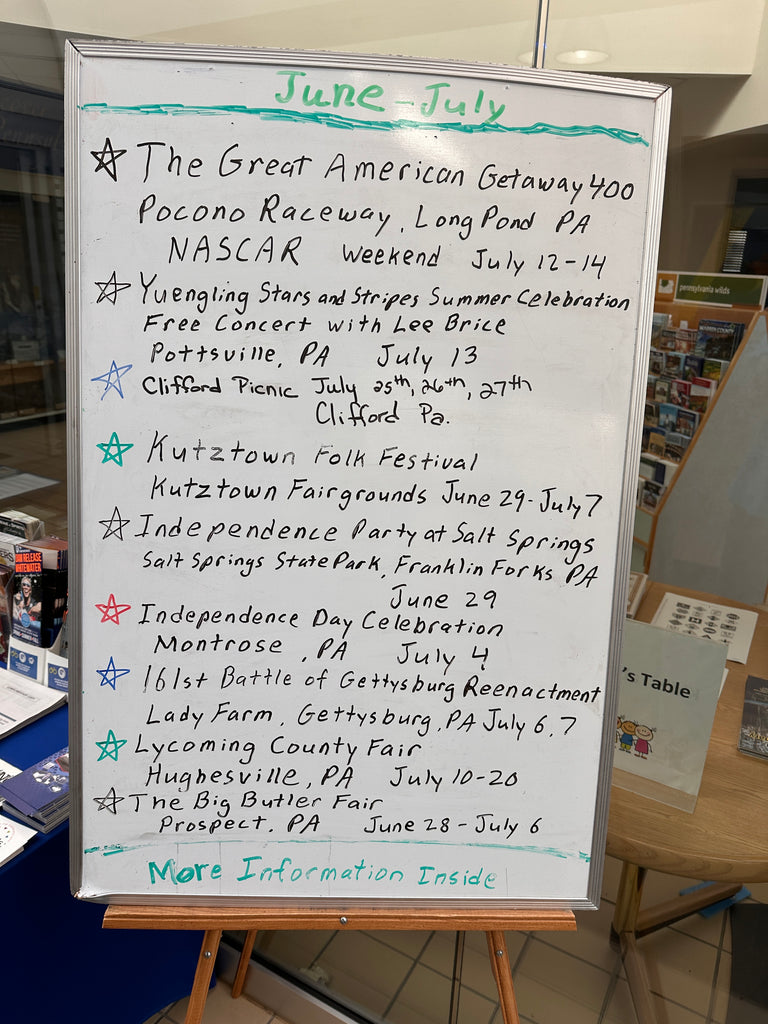 June - July
The Great American Getaway 400
Pocono Raceway, Long Pond PA
NASCAR Weekend July 12-14
Yuengling Stars and Stripes Summer Celebration
Free Concert with Lee Brice
Pottsville, PA July 13
Clifford Picnic July 25th, 26th, 27th
Clifford Pa.
Kutztown Folk Festival
Kutztown Fairgrounds June 29-July 7
Independence Party at Salt Springs
Salt Springs State Park, Franklin Forks PA
June 29
Independence Day Celebration
Montrose, PA July 4
161st Battle of Gettysburg Reenactment
Lady Farm, Gettysburg, PA July 6,7
Lycoming County Fair
Hughesville, PA July 10-20
The Big Butler Fair
Prospect, PA June 28 - July 6
More Information Inside
pennsylvania wilds
's Table
RELEASE
WHITEWATER